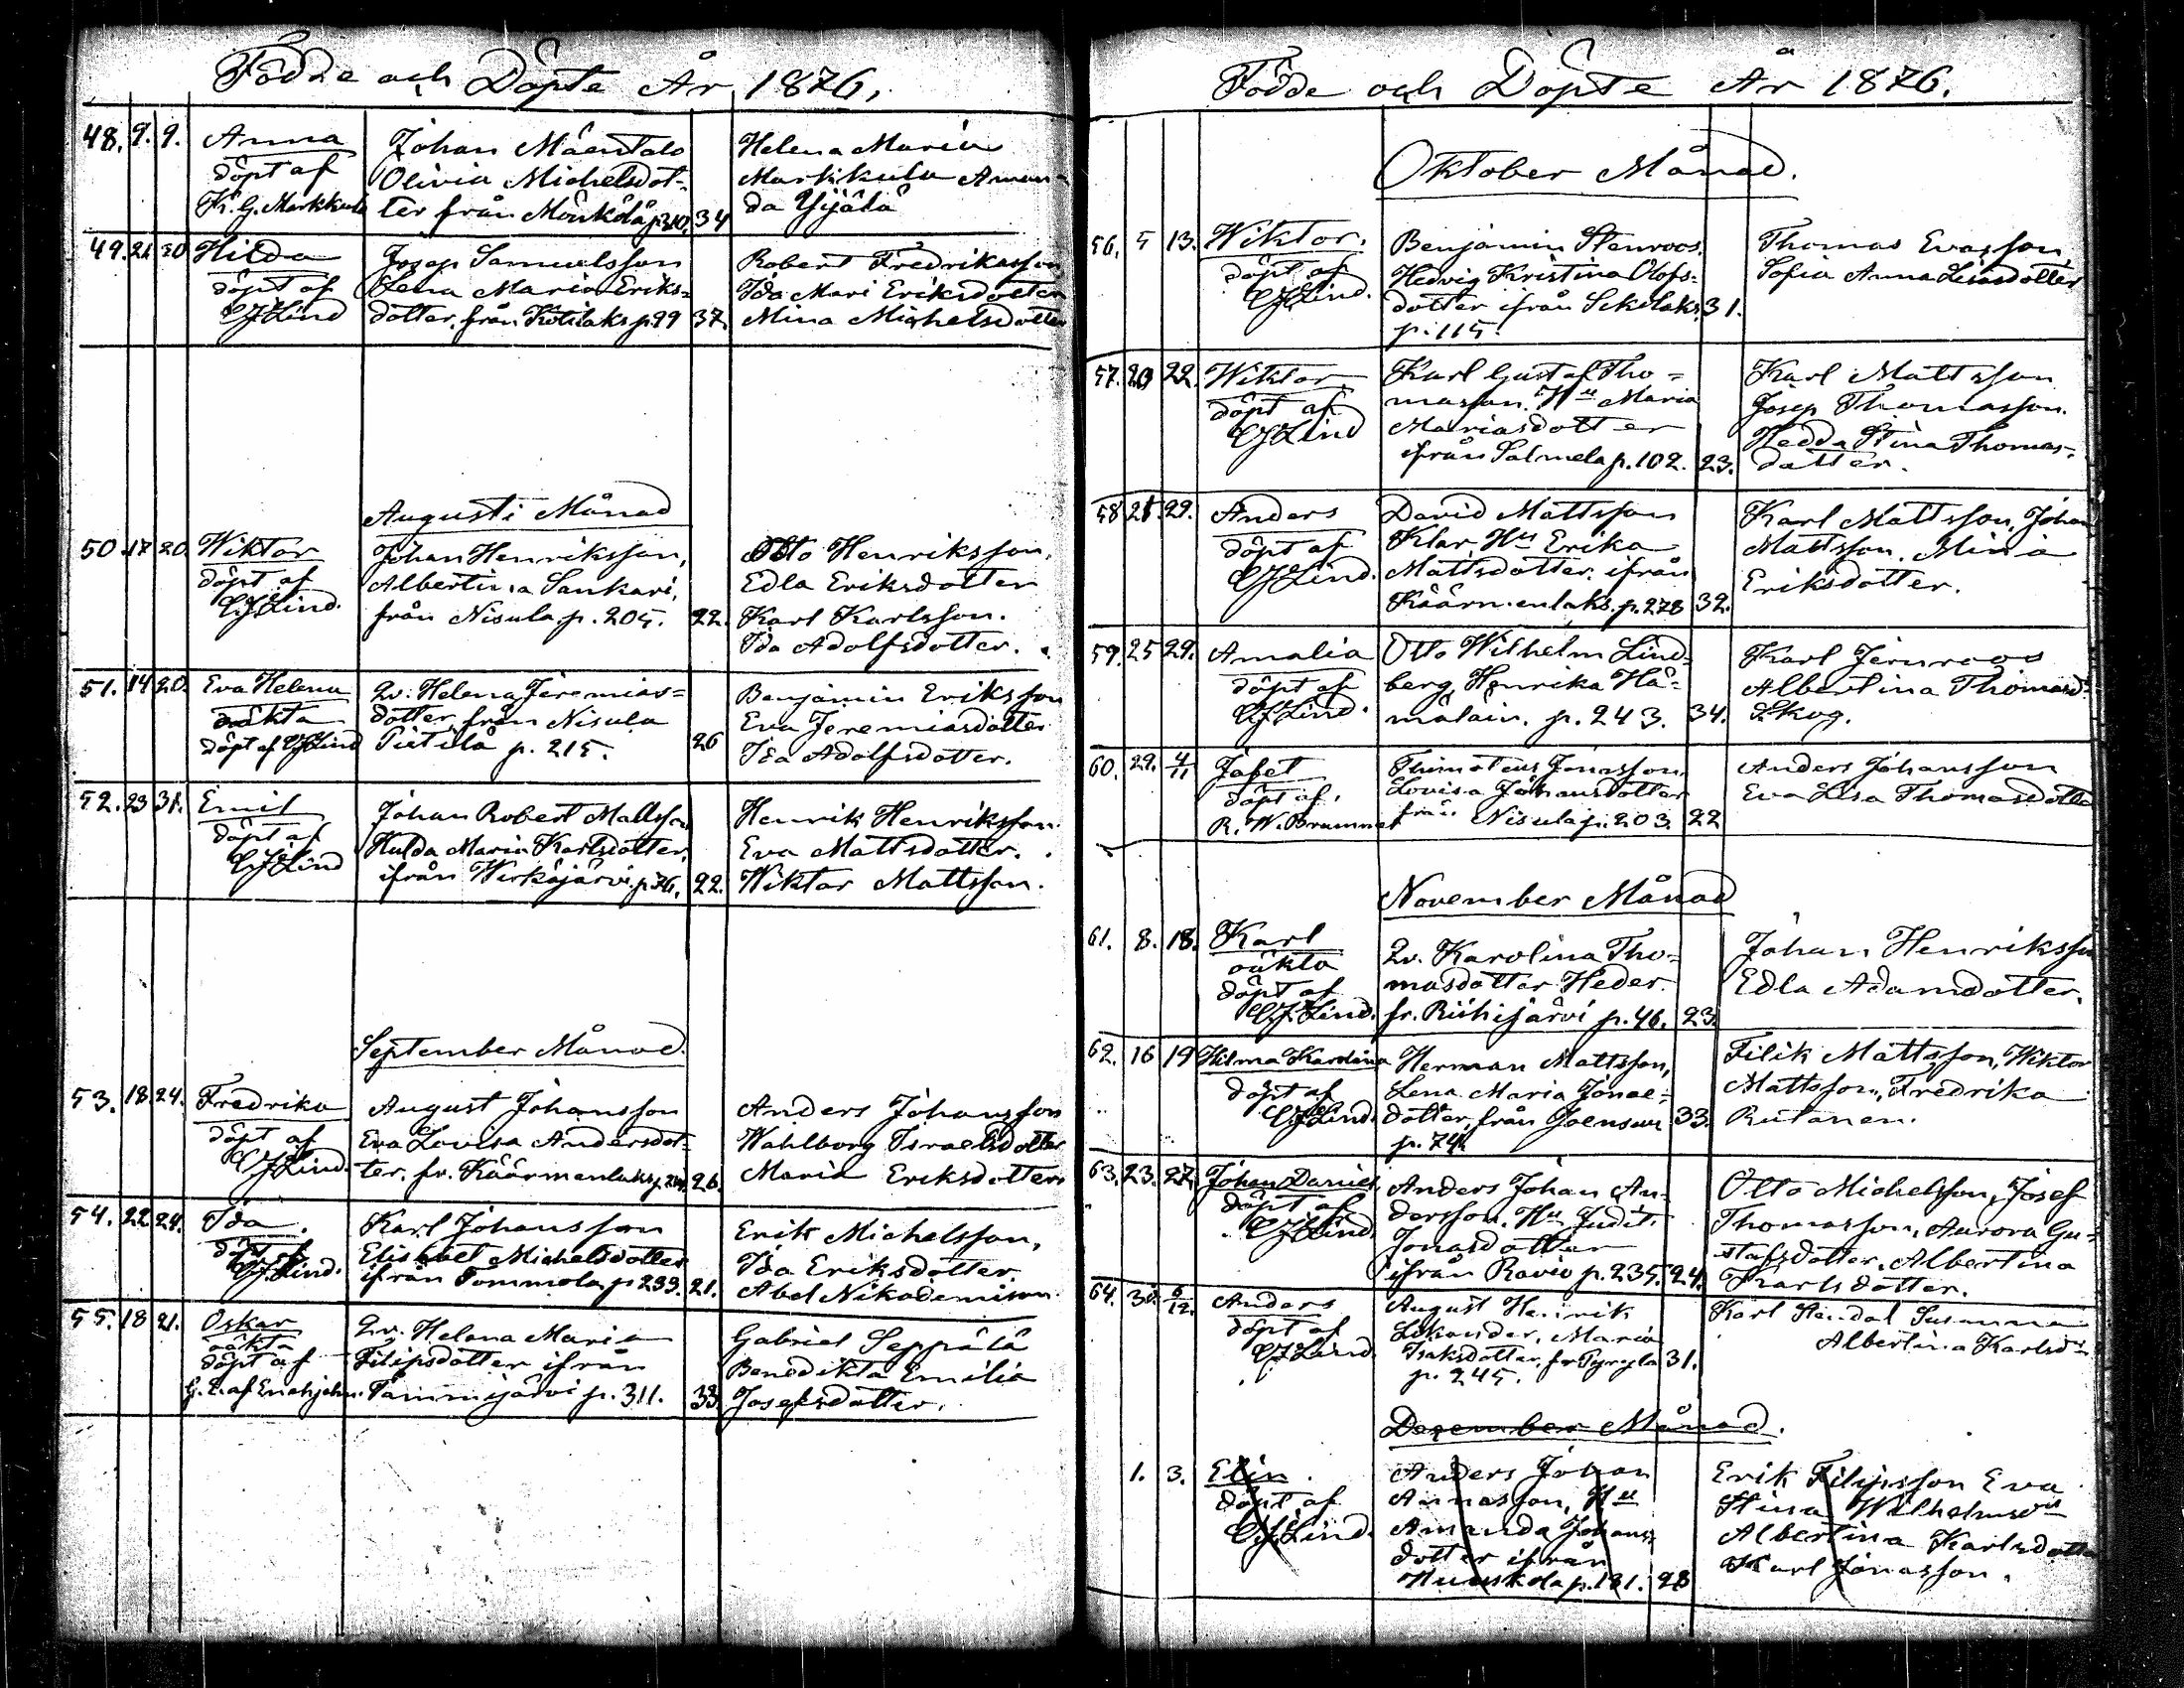 Födde och Döpte År 1876.
48. 9. 9. Anna Johan Mäentalo Helena Maria
döpt af Olivia Michelsdot- Markkula Aman-
K. G. Markkula ter från Mönkölä p. 310. 34 da Yijälä
49. 21 30 Hilda Josep Samuelsson Robert Fredriksson
döpt af Lena Maria Eriks- Ida Mari Eriksdotter
CJLind dotter, från Kotilaks p. 99 37. Mina Michelsdotter
Augusti Månad
50. 17 20. Wiktor Johan Henriksson, Otto Henriksson,
döpt af Albertina Sankari, Edla Eriksdotter
CJLind. från Nisula p. 205. 22. Karl Karlsson.
Ida Adolfsdotter.
51. 14 20. Eva Helena Qv. Helena Jeremias- Benjamin Eriksson
oäkta dotter, från Nisula Eva Jeremiasdotter
döpt af CJLind Pietilä p. 215. 26 Ida Adolfsdotter.
52. 23 31. Emil Johan Robert Mattsson Henrik Henriksson.
döpt af Hulda Maria Karlsdotter, Eva Mattsdotter.
CJLind ifrån Wirkäjärvi p. 76. 22. Wiktor Mattsson.
September Månad.
53. 18. 24. Fredrika August Johansson Anders Johansson
döpt af Eva Lovisa Andersdot- Wahlborg Israelsdotter
CJLind. ter. fr. Käärmenlaks p. 26. Maria Eriksdotter
54. 22 24. Ida. Karl Johansson Erik Michelsson,
döpt af Elisabet Michelsdotter Ida Eriksdotter.
CJLind. ifrån Tommola p. 233. 21. Abel Nikodemison
55. 18 21. Oskar Qv. Helena Maria Gabriel Seppälä
oäkta Filipsdotter ifrån Benedikta Emilia
döpt af Tammijärvi p. 311. 33. Josefsdotter.
G. E. af Enehjelm.
Födde och Döpte År 1876.
Oktober Månad.
56. 5 13. Wiktor. Benjamin Stenroos. Thomas Evasson,
döpt af Hedvig Kristina Olofs- Sofia Anna Lisasdotter
CJLind. dotter ifrån Sikolaks. 31.
p. 115.
57. 20 22. Wiktor Karl Gustaf Tho- Karl Mattsson
döpt af masson. Hu Maria Josep Thomasson.
CJLind Mariasdotter Hedda Stina Thomas-
ifrån Salmela p. 102. 23. dotter.
58. 21. 29. Anders David Mattsson Karl Mattsson, Johan
döpt af Klar, Hu Erika Mattsson. Mina
CJLind. Mattsdotter. ifrån Eriksdotter.
Käärmenlaks. p. 278 32.
59. 25 29. Amalia Otto Wilhelm Lind- Karl Jernroos
döpt af berg, Henrika Hä- Albertina Thomasd
CJLind. mäläin. p. 243. 34. Skog.
60. 29. 4/11 Jafet Thimoteus Jonasson. Anders Johansson
döpt af. Lovisa Johansdotter Eva Lisa Thomasdotter
R. W. Brummer från Nisula p. 203. 22
November Månad
61. 8. 18. Karl Qv. Karolina Tho- Johan Henriksson
oäkta masdotter Heder. Edla Adamsdotter.
döpt af fr. Riihijärvi p. 46. 23.
CJLind.
62. 16 19 Hilma Karolina Herman Mattsson, Filik Mattsson, Wiktor
döpt af Lena Maria Jonae- Mattsson, Fredrika
CJLind. dotter, från Joensuu 33. Rutanen.
p. 74
63. 23. 27. Johan Daniel. Anders Johan An- Otto Michelsson, Josef
döpt af dersson. Hu Judit. Thomasson, Aurora Gu-
CJLind. Jonasdotter stafsdotter. Albertina
ifrån Ravio p. 235. 24. Karlsdotter.
64. 30. 6/12. Anders August Henrik Karl Stendal Susanna
döpt af Lekander, Maria Albertina Karlsdr
CJLind. Isaksdotter, fr Pyrylä 31.
p. 245.
Dezember Månad.
1. 3. Elin. Anders Johan Erik Filipsson Eva
döpt af Annasson, Hu Stina Wilhelmsdr
CJLind. Amanda Johans- Albertina Karlsdotter
dotter ifrån Karl Jonasson.
p. 181. 28